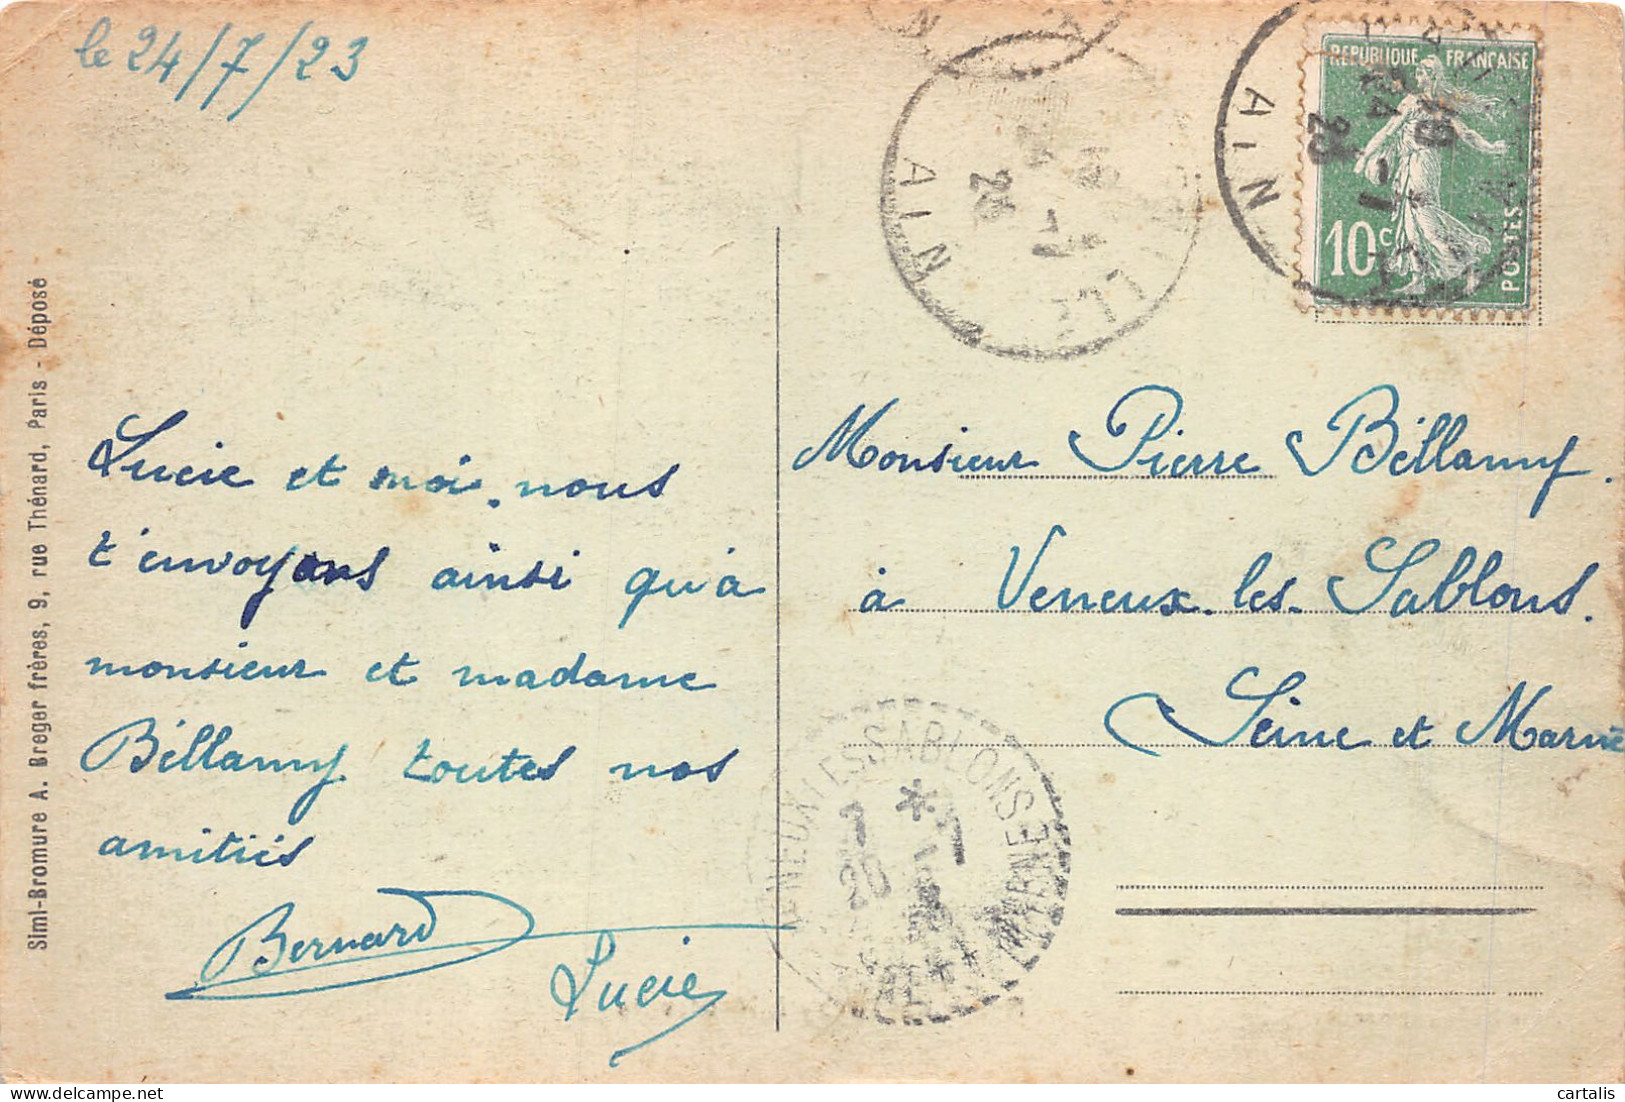 le 24/7/23
RÉPUBLIQUE FRANÇAISE
10c
POSTES
AIN
AIN
Lucie et moi, nous
t'envoyons ainsi qu'à
monsieur et madame
Bellamy toutes nos
amitiés
Bernard
Lucie
Monsieur Pierre Bellamy.
à Veneux-les-Sablons.
Seine et Marne
VENEUX LES SABLONS
Simi-Bromure A. Breger frères, 9, rue Thénard, Paris - Déposé
cartalis